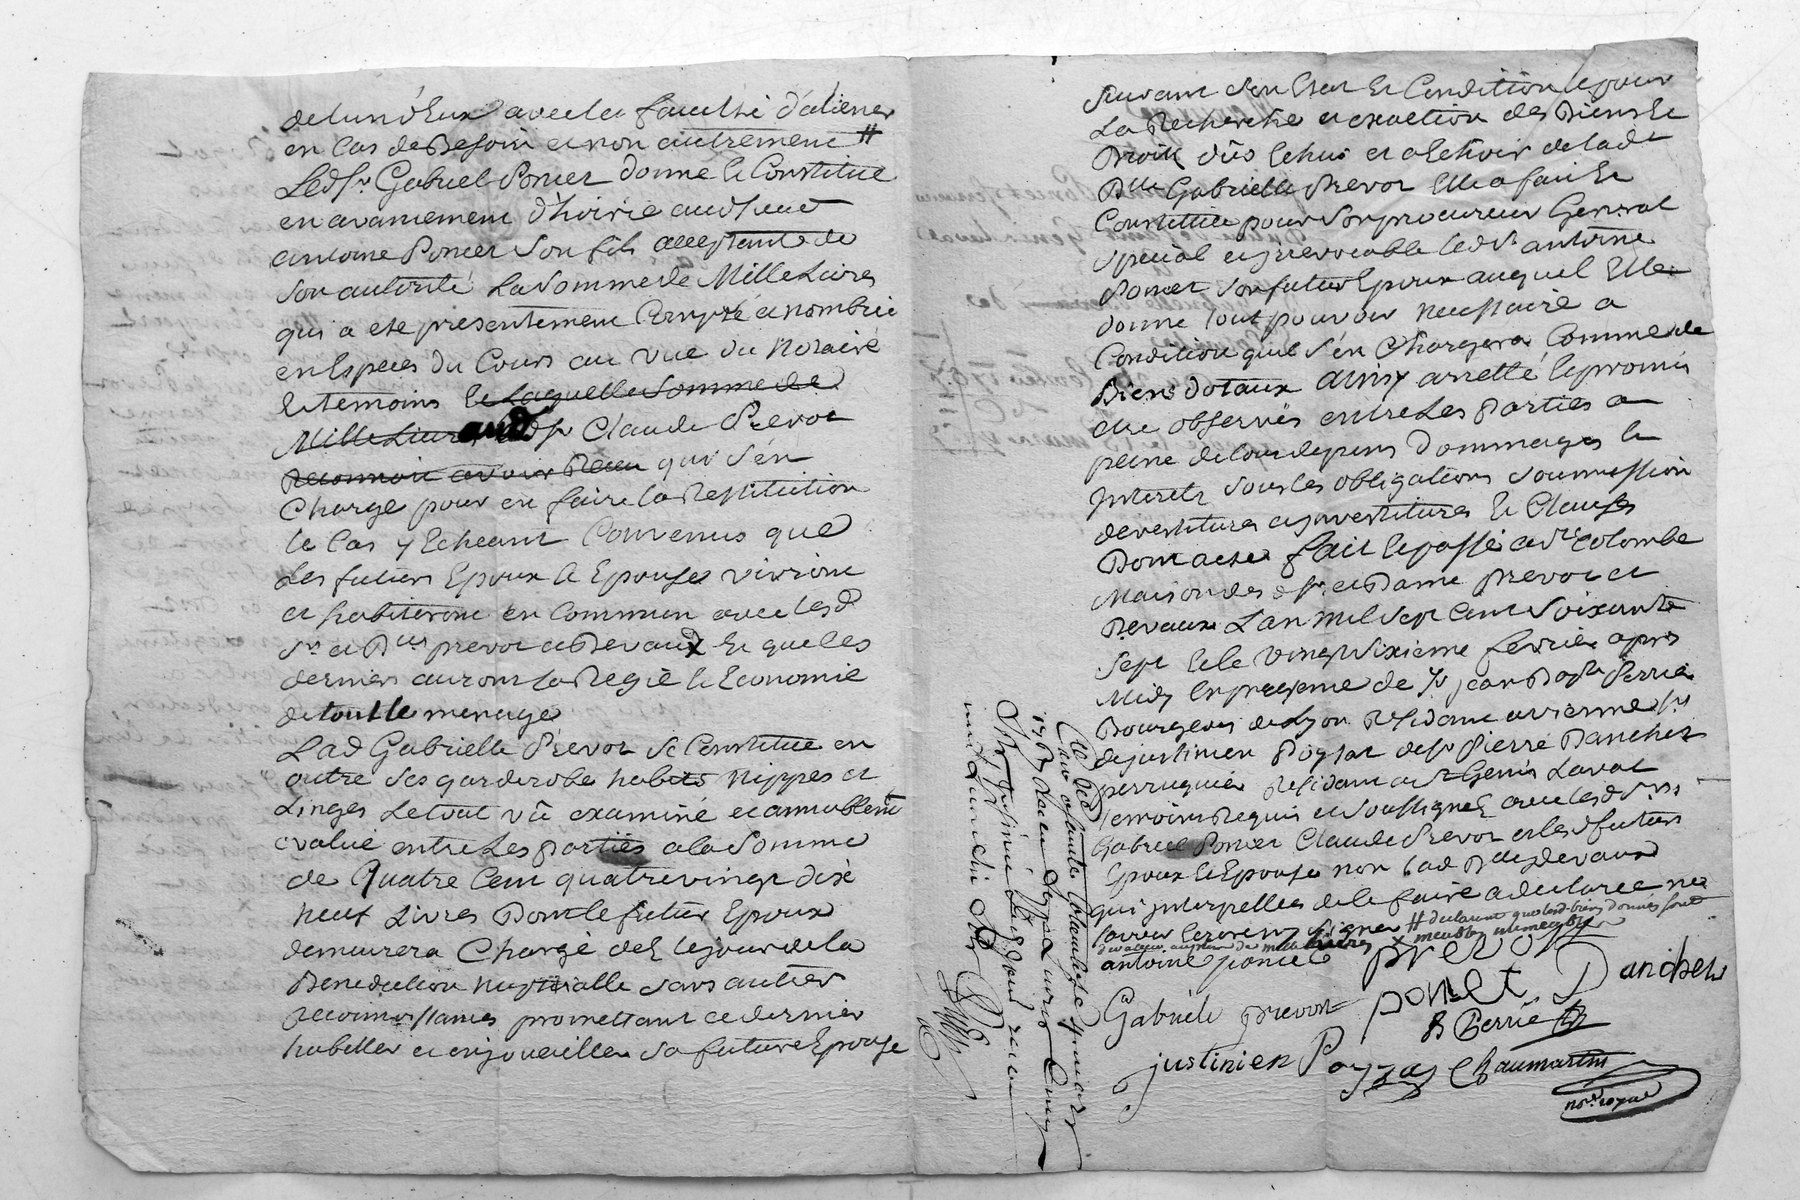 de lun d'Eux avec la faculté d'aliener
en Cas de Besoin et non autrement #
Led. Sr. Gabriel Poncet donne & Constitue
en avancement d'hoirie aud. Sieur
antoine Poncet Son fils acceptant de
Son autorité La Somme de Mille Livres
qui a eté presentement Compté et nombrée
en Especes du Cours au vue du Notaire
& temoins & Laquelle Somme de
Mille Livres aud. Sr Claude Prevot
Reconnoit avoir Receu qui S'en
Charge pour en faire la Restitution
le Cas y Echeant Convenus que
Les futurs Epoux & Epouse vivront
et habiteront en Commun avec lesd.
Srs et Dlle prevot et Devaux & que les
derniers auront la Regie & Economie
de tout le menage
Lad Gabrielle Prevot Se Constitue en
outre Ses garderobe habits Nippes et
Linges Le tout vû examiné et amiablement
evalué entre Les parties a la Somme
de Quatre Cent quatre vingt dix
neuf Livres Dont le futur Epoux
demeurera Chargé dés le jour de la
Benediction Nuptialle sans autres
reconnoissances promettant ce dernier
habiller et enjoueiller sa future Epouse
Suivant Son Etat & Condition & pour
La Recherche et exaction des Biens &
Droits dûs Echus et a Echoir de lad.
Dlle Gabrielle Prevot Elle a fait &
Constitué pour Son procureur General
Special et irrevocable led Sr antoine
Poncet Son futur Epoux auquel Elle
donne tout pouvoir necessaire a
Condition quil S'en Chargera Comme de
Biens dotaux ainsy arretté & promis
etre observés entre Les Parties a
peine de tous depens Dommages &
Interets sous les obligations soumission
devestitures et investitures & Clauses
Dont acte fait & passé a Ste Colombe
Maison des Sr. et Dame prevot et
Devaux Lan Mil Sept Cent Soixante
Sept & le vingt Sixieme fevrier apres
Midy En presence de Sr Jean Bapte Perrie
Bourgeois de Lyon Residant a vienne Srs
de justinien Poyzat de Sr Pierre Danches
perruquier Residant a St Genis Laval
temoins Requis et Soussignez avec lesd Srs
Gabriel Poncet Claude Prevot et lesd futurs
Epoux & Epouse non Lad Dlle Devaux
qui interpellée de le faire a declaré ne
savoir Ecrire ny Signer # declarant que lesd. biens donnés sont
de valeur au plus de mille livres x meubles immeubles
antoine poncet prevost
Gabriele prevost poncet Danches
B Perrie
justinien Poyzat Chaumartin
nore royal
Clle Ste Colombe
1767 Receu Sept Livres